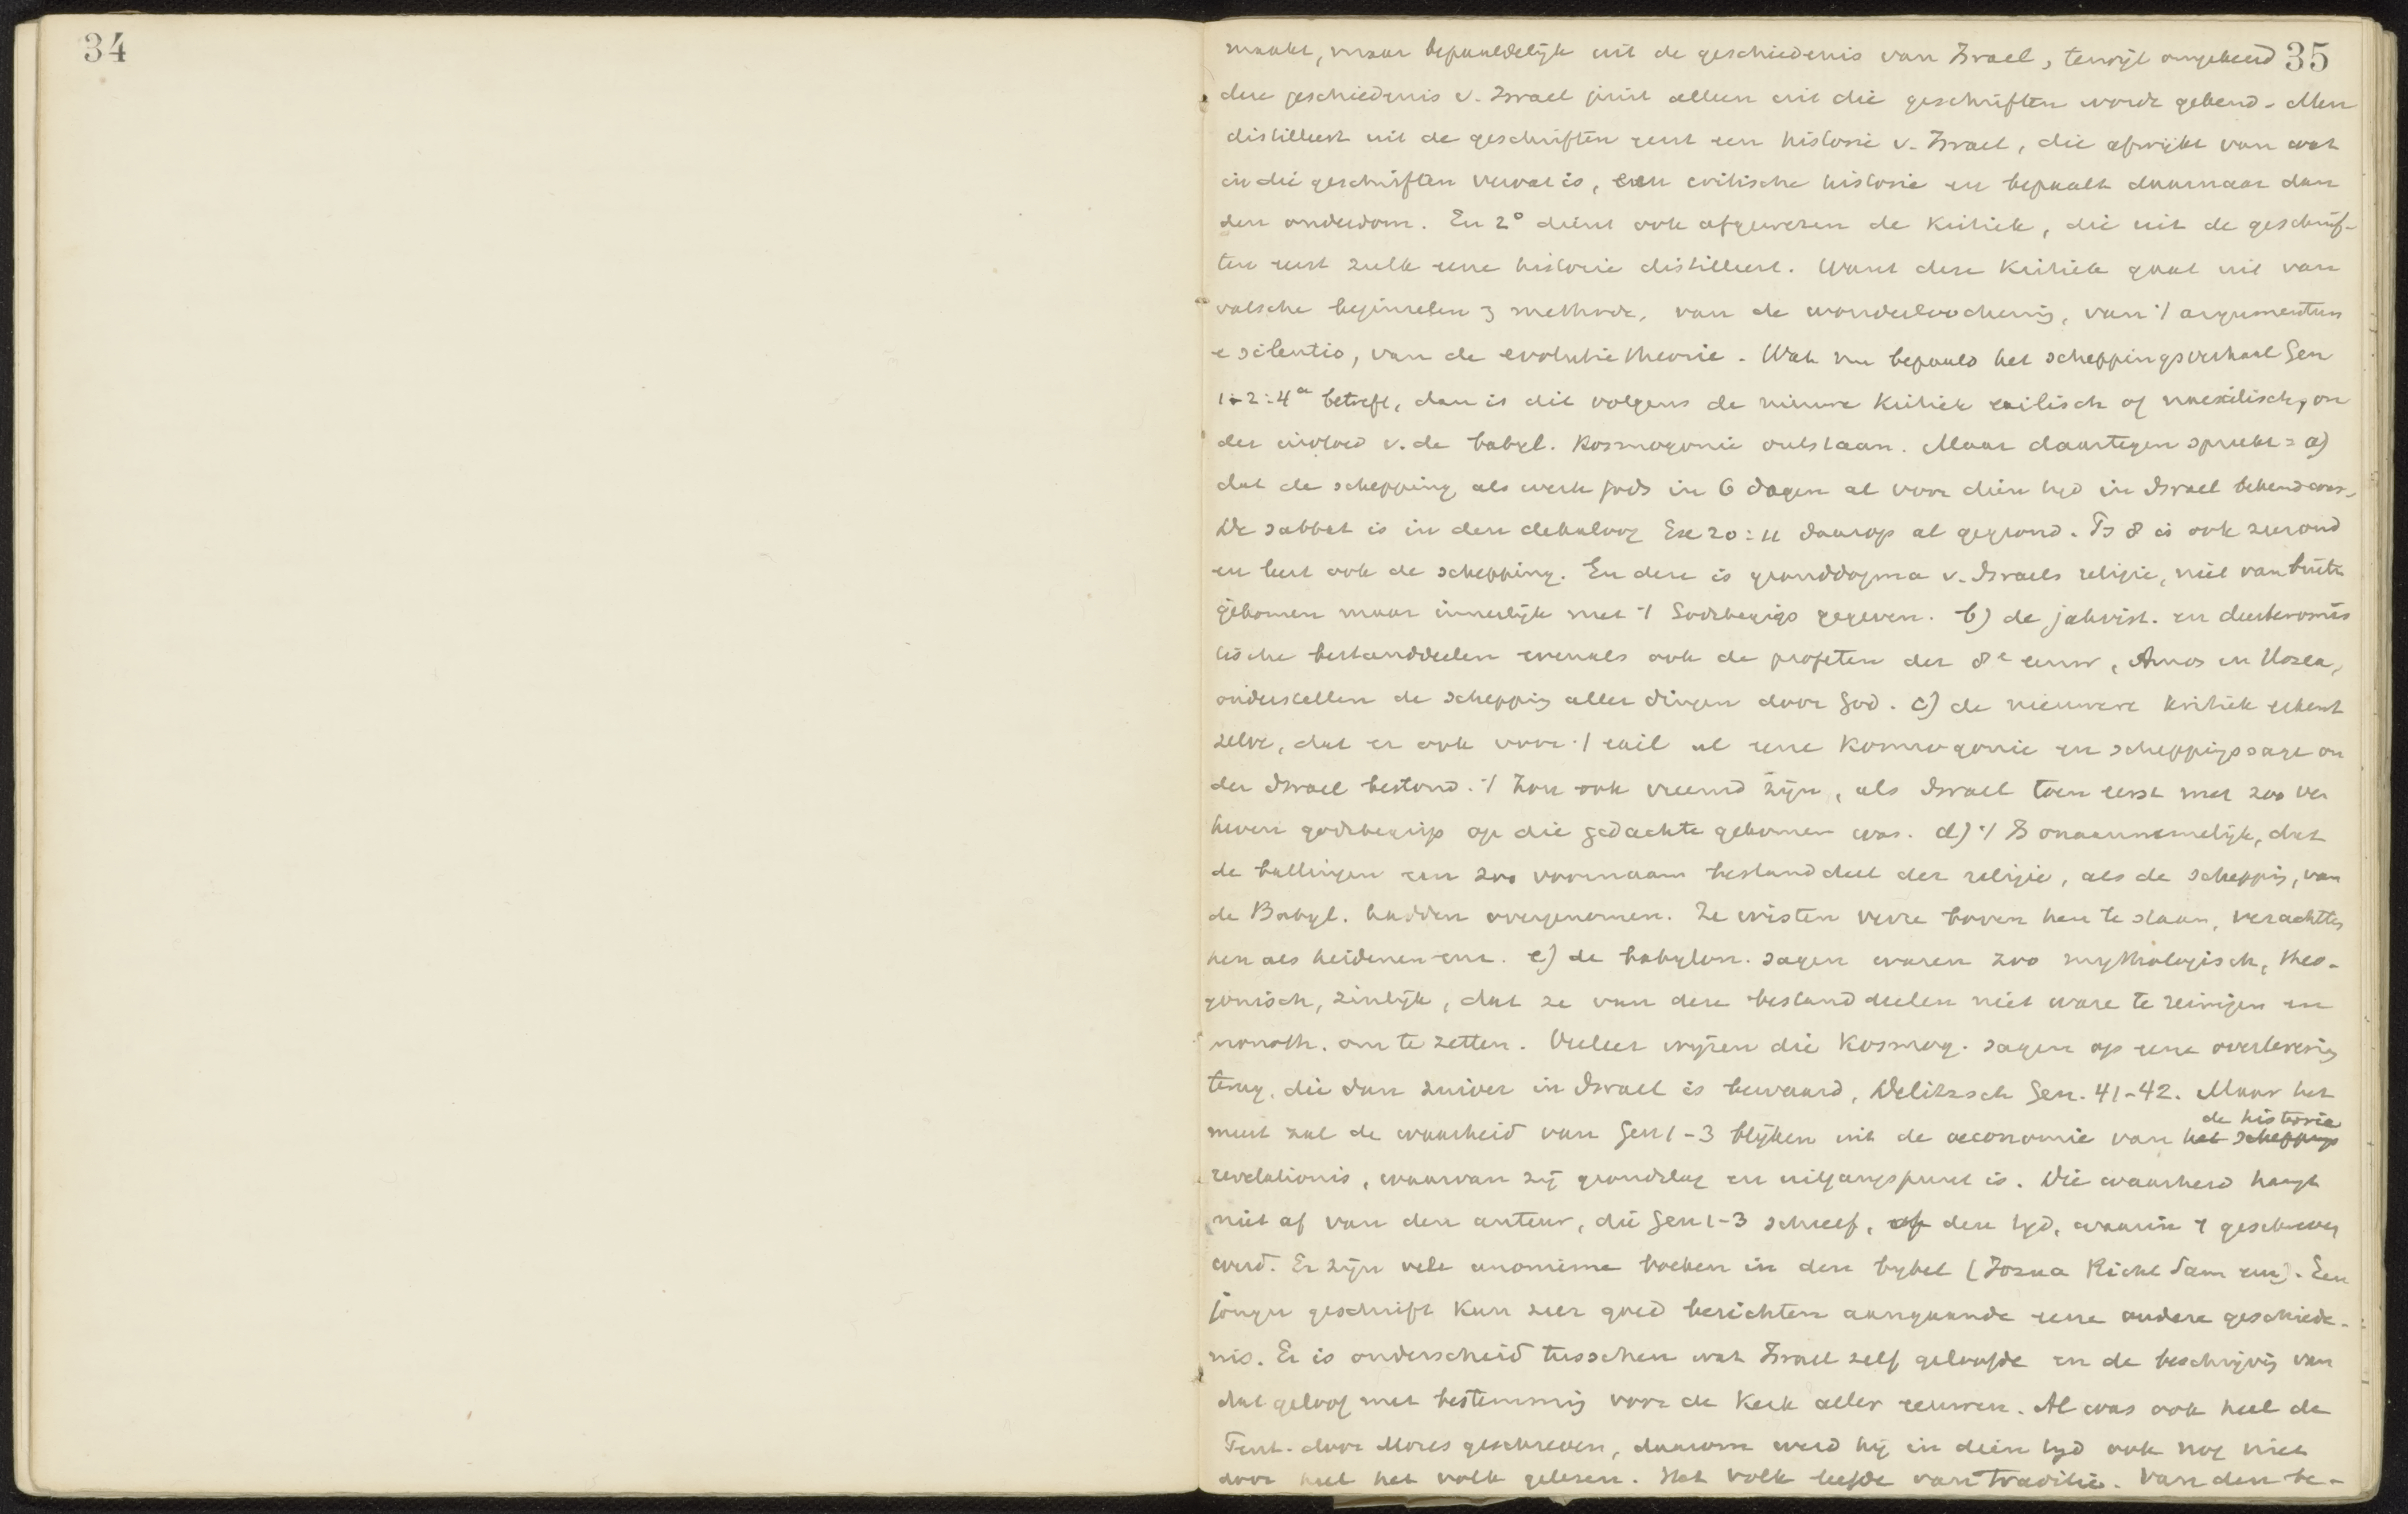 34
35
maakt, maar bepaaldelijk uit de geschiedenis van Israel, terwijl omgekeerd
deze geschiedenis v. Israel juist alleen uit die geschriften wordt gekend. Men
distilleert uit de geschriften eerst een historie v. Israel, die afwijkt van wat
in die geschriften vervat is, een critische historie en bepaalt daarnaar dan
den ouderdom. En 2° dient ook afgewezen de kritiek, die uit de geschrif-
ten eerst zulk eene historie distilleert. Want deze kritiek gaat uit van
valsche beginselen & methode, van de wonderloochening, van 't argumentum
e silentio, van de evolutietheorie. Wat nu bepaald het scheppingsverhaal Gen
1-2:4a betreft, dan is dit volgens de nieuwe kritiek exilisch of naexilisch, on
der invloed v. de babyl. kosmogonie ontstaan. Maar daartegen spreekt: a)
dat de schepping als werk Gods in 6 dagen al voor dien tijd in Israel bekend was.
De sabbat is in den dekaloog Ex 20:11 daarop al gegrond. Ps 8 is ook zeer oud
en leert ook de schepping. En deze is gronddogma v. Israels religie, niet van buiten
gekomen maar innerlijk met 't Godsbegrip gegeven. b) de jahvist. en deuteronomis
tische bestanddeelen evenals ook de profeten der 8e eeuw, Amos en Hosea,
onderstellen de schepping aller dingen door God. c) de nieuwere kritiek erkent
zelve, dat er ook voor 't exil al eene kosmogonie en scheppingssage on
der Israel bestond. 't Zou ook vreemd zijn, als Israel toen eerst met zoo ver
heven godsbegrip op die gedachte gekomen was. d) 't Is onaannemelijk, dat
de ballingen een zoo voornaam bestanddeel der religie, als de schepping, van
de Babyl. hadden overgenomen. Ze wisten verre boven hen te staan, verachtten
hen als heidenen enz. e) de babylon. sagen waren zoo mythologisch, theo-
gonisch, zinlijk, dat ze van deze bestanddeelen niet ware te reinigen en
monoth. om te zetten. Veeleer wijzen die kosmog. sagen op eene overlevering
terug, die dan zuiver in Israel is bewaard, Delitzsch Gen. 41-42. Maar het
de historie
meest zal de waarheid van Gen 1-3 blijken uit de oeconomie van het scheppings
revelationis, waarvan zij grondslag en uitgangspunt is. Die waarheid hangt
niet af van den auteur, die Gen 1-3 schreef, of den tijd, waarin 't geschreven
werd. Er zijn vele anonieme boeken in den bijbel (Jozua Richt Sam enz). Een
jonger geschrift kan zeer goed berichten aangaande eene oudere geschiede-
nis. Er is onderscheid tusschen wat Israel zelf geloofde en de beschrijving van
dat geloof met bestemming voor de kerk aller eeuwen. Al was ook heel de
Pent. door Mozes geschreven, daarom werd hij in dien tijd ook nog niet
door heel het volk gelezen. Het volk leefde van traditie. Van den be-